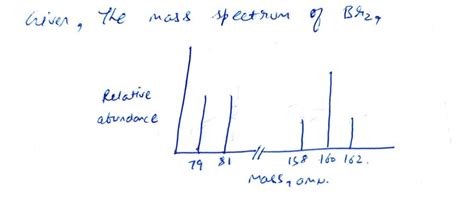 Given, The mass spectrum of Br2,
Relative
abundance
79 81 158 160 162.
Mass, amu.